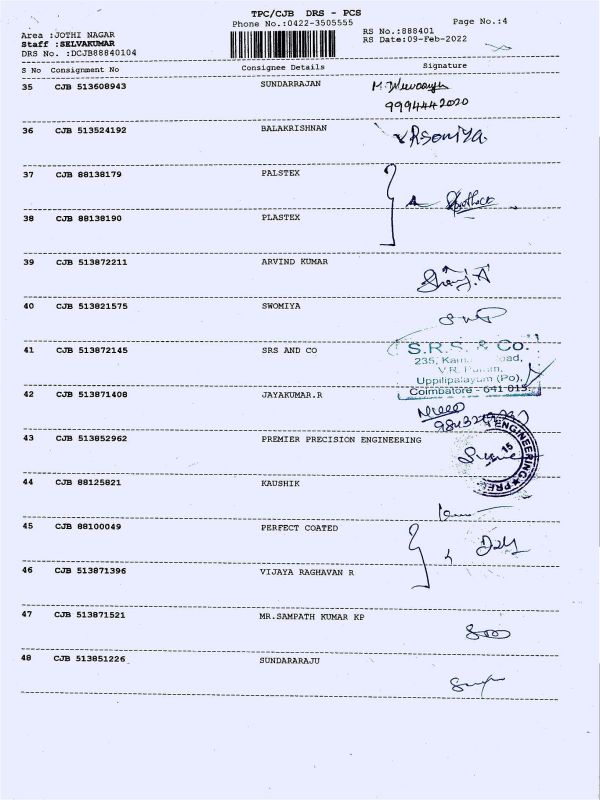 TPC/CJB DRS - PCS
Phone No.:0422-3505555
Page No.:4
Area :JOTHI NAGAR
Staff :SELVAKUMAR
DRS No. :DCJB88840104
RS No.:888401
RS Date:09-Feb-2022
S No Consignment No Consignee Details Signature
35 CJB 513608943 SUNDARRAJAN
9994442020
36 CJB 513524192 BALAKRISHNAN
VRSoniya
37 CJB 88138179 PALSTEX
38 CJB 88138190 PLASTEX
39 CJB 513872211 ARVIND KUMAR
40 CJB 513821575 SWOMIYA
41 CJB 513872145 SRS AND CO
S.R.S. & Co.
235,
V.R.
Uppilipalayam (Po),
Coimbatore - 641 015.
42 CJB 513871408 JAYAKUMAR.R
43 CJB 513852962 PREMIER PRECISION ENGINEERING
ENGINEERING
15
44 CJB 88125821 KAUSHIK
45 CJB 88100049 PERFECT COATED
46 CJB 513871396 VIJAYA RAGHAVAN R
47 CJB 513871521 MR.SAMPATH KUMAR KP
48 CJB 513851226 SUNDARARAJU